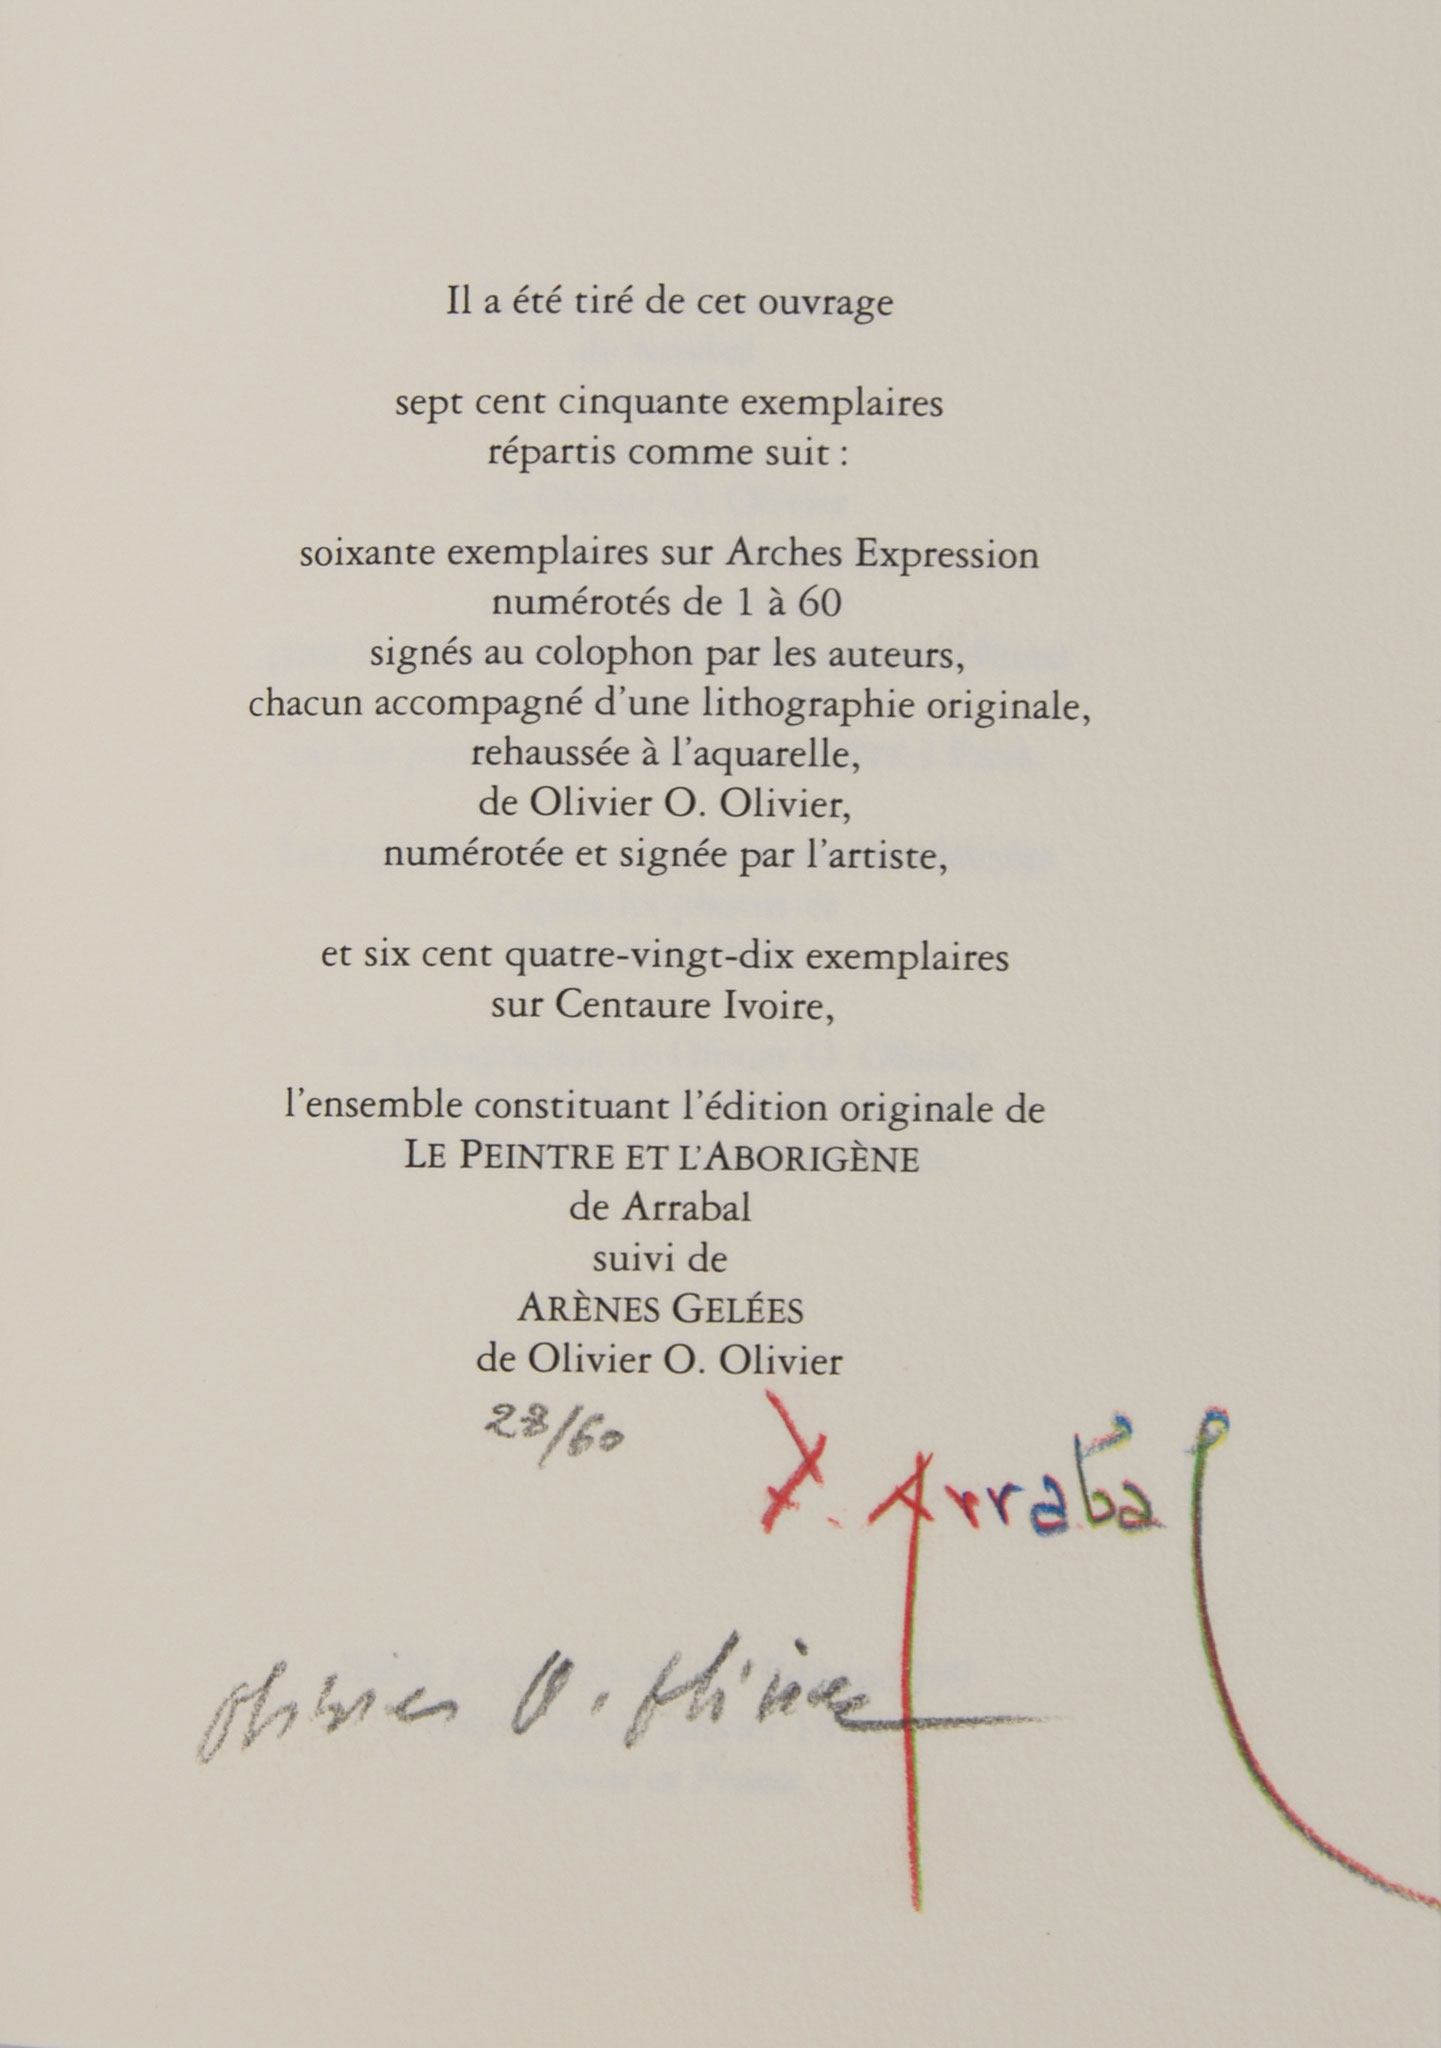 Il a été tiré de cet ouvrage
sept cent cinquante exemplaires
répartis comme suit :
soixante exemplaires sur Arches Expression
numérotés de 1 à 60
signés au colophon par les auteurs,
chacun accompagné d'une lithographie originale,
rehaussée à l'aquarelle,
de Olivier O. Olivier,
numérotée et signée par l'artiste,
et six cent quatre-vingt-dix exemplaires
sur Centaure Ivoire,
l'ensemble constituant l'édition originale de
LE PEINTRE ET L'ABORIGÈNE
de Arrabal
suivi de
ARÈNES GELÉES
de Olivier O. Olivier
28/60
Arrabal
Olivier O. Olivier